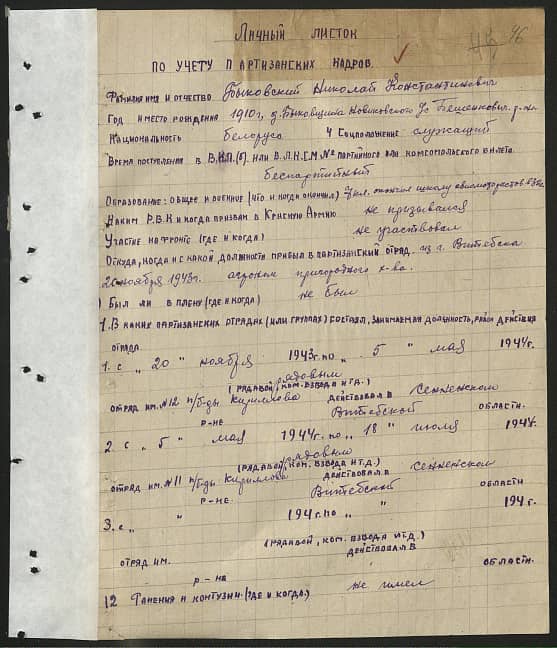 46
Личный листок
по учету партизанских кадров.
Фамилия имя и отчество Быковский Николай Константинович
Год и место рождения 1910 г. д. Быковщина Новиковского с/с Бешенкович. р-на
Национальность белорус 4 Соцположение служащий
Время поступления в В.К.П.(б) или В.Л.К.С.М № партийного или комсомольского билета
беспартийный
Образование: общее и военное (что и когда окончил)
Каким Р.В.К и когда призван в Красную Армию не призывался
Участие на фронте (где и когда) не участвовал
Откуда, когда и с какой должности прибыл в партизанский отряд. из г. Витебска
20 ноября 1943г. агроном пригородного х-ва.
) Был ли в плену (где и когда) не был
1. В каких партизанских отрядах (или группах) состоял, занимаемая должность, район действия
отряда.
1. с „ 20 " ноября 1943 г. по „ 5 " мая 1944 г.
рядовым
(рядавой, ком. взвода и т.д.)
отряд им. №12 п/б-ды Кириллова действовал в Сенненском
р-не Витебской области.
2. с „ 5 " мая 1944 г. по „ 18 " июля 1944 г.
рядовым
(рядавой, ком. взвода и т.д.)
отряд им. №11 п/б-ды Кириллова действовал в Сенненском
р-не Витебской области
3. с „ " 194 г. по „ " 194 г.
(рядавой, ком. взвода и т.д.)
отряд им. действовал в
р-на области.
12 Ранения и контузии (где и когда.) не имел